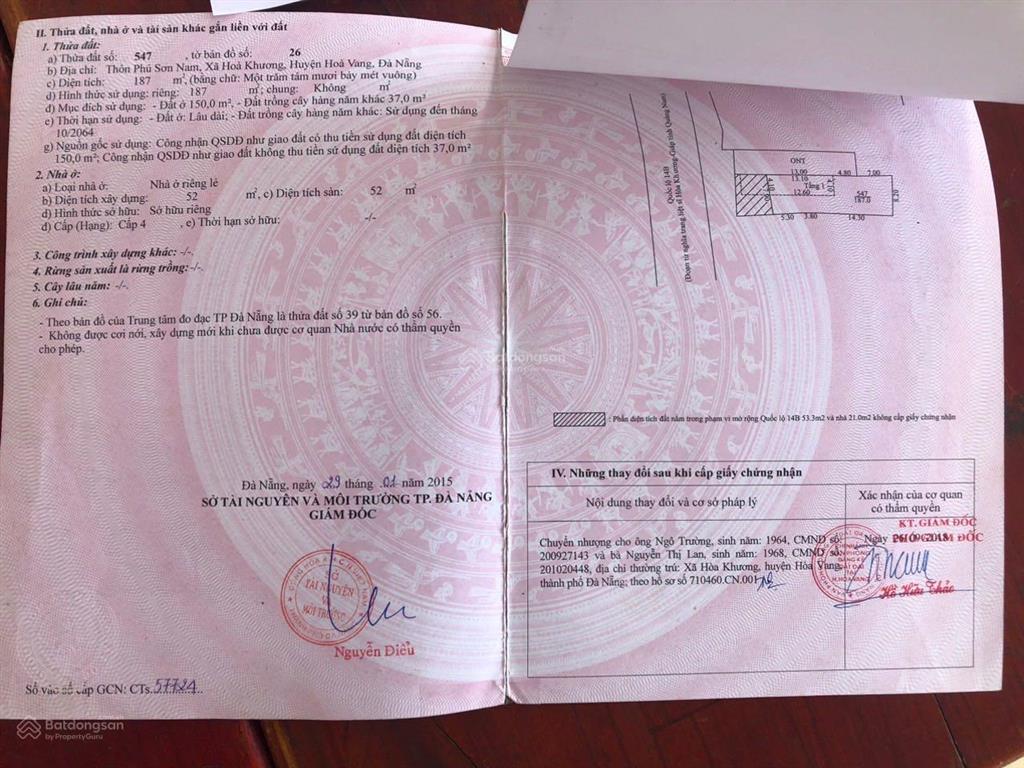 II. Thửa đất, nhà ở và tài sản khác gắn liền với đất
1. Thửa đất:
a) Thửa đất số: 547 , tờ bản đồ số: 26
b) Địa chỉ: Thôn Phú Sơn Nam, Xã Hoà Khương, Huyện Hoà Vang, Đà Nẵng
c) Diện tích: 187 m², (bằng chữ: Một trăm tám mươi bảy mét vuông)
d) Hình thức sử dụng: riêng: 187 m²; chung: Không m²
đ) Mục đích sử dụng: - Đất ở 150,0 m², - Đất trồng cây hàng năm khác 37,0 m²
e) Thời hạn sử dụng: - Đất ở: Lâu dài; - Đất trồng cây hàng năm khác: Sử dụng đến tháng
10/2064
g) Nguồn gốc sử dụng: Công nhận QSDĐ như giao đất có thu tiền sử dụng đất diện tích
150,0 m²; Công nhận QSDĐ như giao đất không thu tiền sử dụng đất diện tích 37,0 m²
2. Nhà ở:
a) Loại nhà ở: Nhà ở riêng lẻ
b) Diện tích xây dựng: 52 m², c) Diện tích sàn: 52 m²
d) Hình thức sở hữu: Sở hữu riêng
đ) Cấp (Hạng): Cấp 4 , e) Thời hạn sở hữu: -/-
3. Công trình xây dựng khác: -/-.
4. Rừng sản xuất là rừng trồng:-/-.
5. Cây lâu năm: -/-.
6. Ghi chú:
- Theo bản đồ của Trung tâm đo đạc TP Đà Nẵng là thửa đất số 39 tờ bản đồ số 56.
- Không được cơi nới, xây dựng mới khi chưa được cơ quan Nhà nước có thẩm quyền
cho phép.
Đà Nẵng, ngày 29 tháng 01 năm 2015
SỞ TÀI NGUYÊN VÀ MÔI TRƯỜNG TP. ĐÀ NẴNG
GIÁM ĐỐC
SỞ
TÀI NGUYÊN
VÀ
MÔI TRƯỜNG
Nguyễn Điểu
Số vào sổ cấp GCN: CTs.57724..
Quốc lộ 14B
(Đoạn từ nghĩa trang liệt sĩ Hòa Khương-Giáp tỉnh Quảng Nam)
ONT
13.00 4.80 7.00
13.10
Tầng 1
4.10
4.10
12.60
547
187.0
8.20
5.30 3.80 14.30
: Phần diện tích đất nằm trong phạm vi mở rộng Quốc lộ 14B 53.3m2 và nhà 21.0m2 không cấp giấy chứng nhận
IV. Những thay đổi sau khi cấp giấy chứng nhận
Nội dung thay đổi và cơ sở pháp lý
Xác nhận của cơ quan
có thẩm quyền
Chuyển nhượng cho ông Ngô Trường, sinh năm: 1964, CMND số:
200927143 và bà Nguyễn Thị Lan, sinh năm: 1968, CMND số:
201020448, địa chỉ thường trú: Xã Hòa Khương, huyện Hòa Vang,
thành phố Đà Nẵng; theo hồ sơ số 710460.CN.001
KT. GIÁM ĐỐC
PHÓ GIÁM ĐỐC
Hồ Hữu Thảo
Batdongsan
Batdongsan
by PropertyGuru